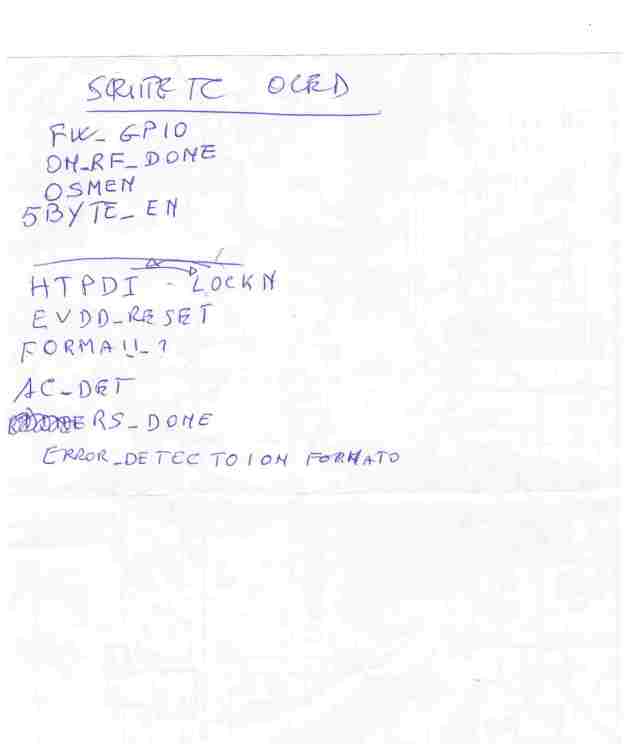 SCRITTE TC OCRD
FW_GPIO
ON_RF_DONE
OSMEN
5BYTE_EN
HTPDI - LOCKN
EVDD_RESET
FORMA!!_?
AC_DET
RS_DONE
ERROR_DETECTOION FORMATO